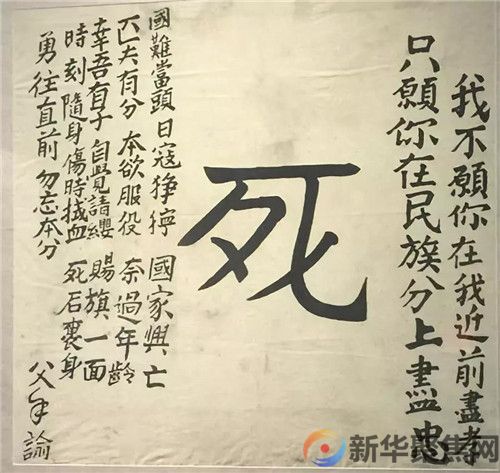 我不願你在我近前盡孝
只願你在民族分上盡忠
死
國難當頭 日寇猙獰 國家興亡
匹夫有分 本欲服役 奈過年齡
幸吾有子 自覺請纓 賜旗一面
時刻隨身 傷時拭血 死后裹身
勇往直前 勿忘本分
父手諭
新华聚焦网